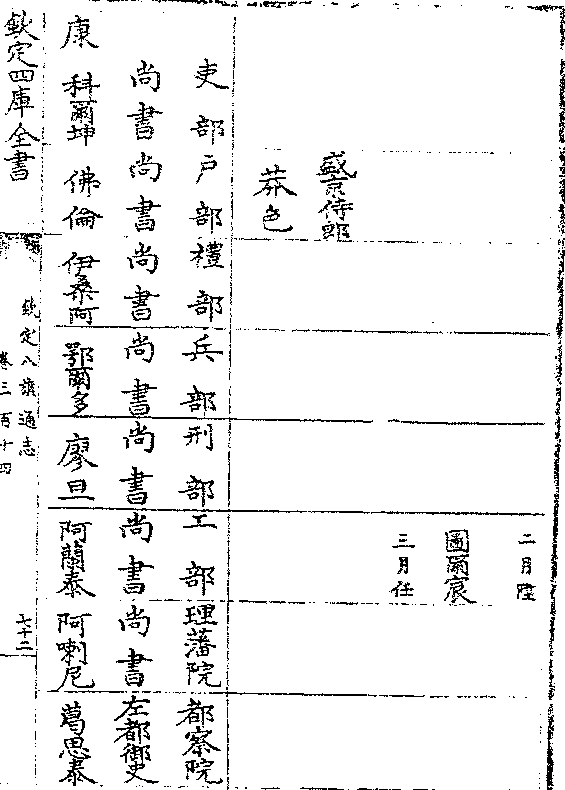 二月陞
圖爾宸
三月任
盛京侍郎
莽色
吏部 戶部 禮部 兵部 刑部 工部 理藩院 都察院
尚書 尚書 尚書 尚書 尚書 尚書 尚書 左都御史
康 科爾坤 佛倫 伊桑阿 鄂爾多 廖旦 阿蘭泰 阿喇尼 葛思泰
欽定四庫全書
欽定八旗通志
卷三百十四
七十二